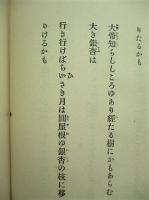 りたるかも
大帝知らししころゆあり經たる樹にかもあらむ
大き銀杏は
行き行けばちひさき月は圓屋根ゆ銀杏の枝に移
りけるかも